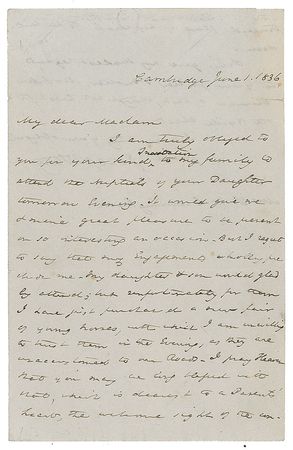 Cambridge June 1. 1836
My dear Madam
I am truly obliged to
you for your kind Invitation to my family to
attend the Nuptials of your Daughter
tomorrow Evening. It would give me
great pleasure to be present
on so interesting an occasion. But I regret
to say that my Engagements wholly pre
clude me. My daughter & son would gladly
attend; but unfortunately for them
I have just purchased a new pair
of young horses, with which I am unwilling
to trust them in the Evening, as they are
unaccustomed to our Road. I pray Heaven
that you may be long blessed with
that, which is dearest to a Parents'
heart, the welcome sight of the